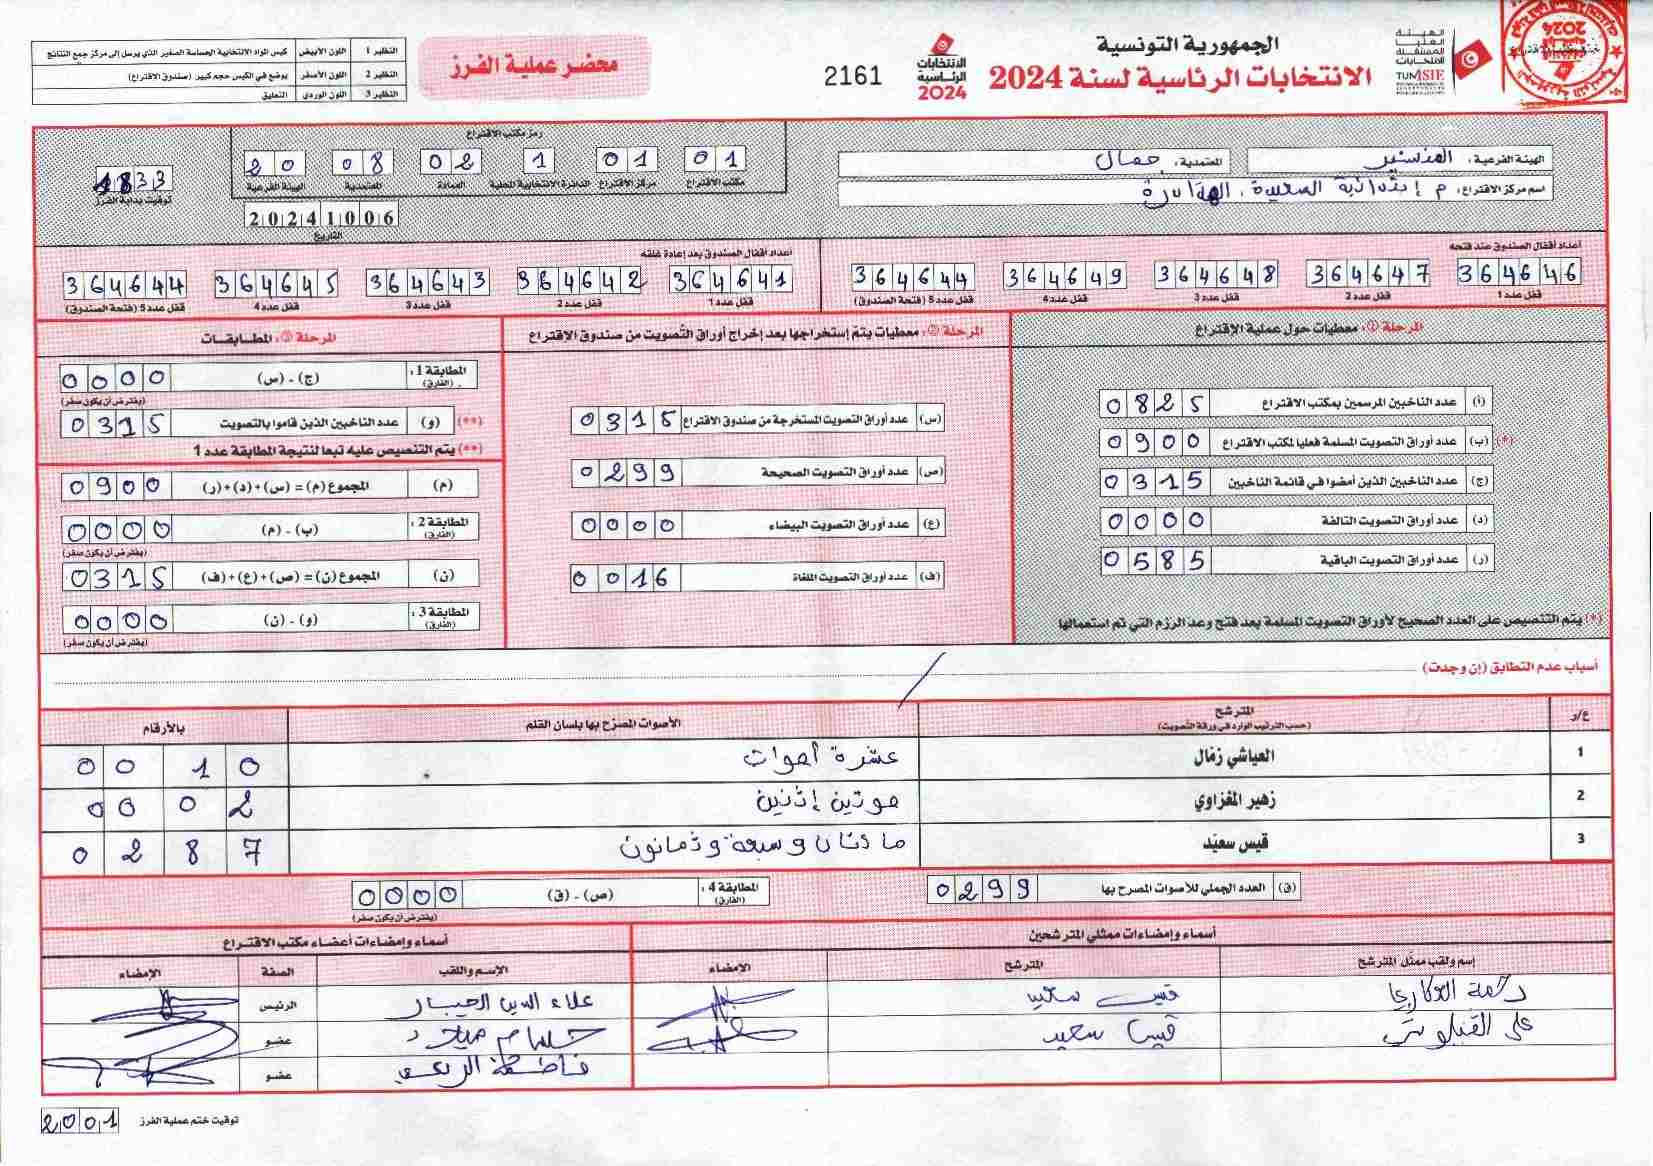 الجمهورية التونسية
الانتخابات الرئاسية لسنة 2024
الهيئة العليا المستقلة للانتخابات
الانتخابات الرئاسية 2024
2161
محضر عملية الفرز
النظير 1 اللون الأبيض كيس المواد الانتخابية الحساسة الصغير الذي يرسل إلى مركز جمع النتائج
النظير 2 اللون الأصفر يوضع في الكيس حجم كبير (صندوق الاقتراع)
النظير 3 اللون الوردي التعليق
الهيئة الفرعية: المنستير المعتمدية: جمال
اسم مركز الاقتراع: م إبتدائية السعيدة، الهدادرة
رمز مكتب الاقتراع
01 01 1 02 08 20
مكتب الاقتراع مركز الاقتراع الدائرة الانتخابية المحلية العمادة المعتمدية الهيئة الفرعية
20241006
التاريخ
1833
توقيت بداية الفرز
أعداد أقفال الصندوق عند فتحه
364646 364647 364648 364649 364644
قفل عدد 1 قفل عدد 2 قفل عدد 3 قفل عدد 4 قفل عدد 5 (فتحة الصندوق)
أعداد أقفال الصندوق بعد إعادة غلقه
364641 364642 364643 364645 364644
قفل عدد 1 قفل عدد 2 قفل عدد 3 قفل عدد 4 قفل عدد 5 (فتحة الصندوق)
المرحلة ①: معطيات حول عملية الاقتراع
(أ) عدد الناخبين المرسمين بمكتب الاقتراع 0825
(*) (ب) عدد أوراق التصويت المسلمة فعليا لمكتب الاقتراع 0900
(ج) عدد الناخبين الذين أمضوا في قائمة الناخبين 0315
(د) عدد أوراق التصويت التالفة 0000
(ر) عدد أوراق التصويت الباقية 0585
(*) يتم التنصيص على العدد الصحيح لأوراق التصويت المسلمة بعد فتح وعد الرزم التي تم استعمالها
المرحلة ②: معطيات يتم إستخراجها بعد إخراج أوراق التصويت من صندوق الاقتراع
(س) عدد أوراق التصويت المستخرجة من صندوق الاقتراع 0315
(ص) عدد أوراق التصويت الصحيحة 0299
(ع) عدد أوراق التصويت البيضاء 0000
(ف) عدد أوراق التصويت الملغاة 0016
المرحلة ③: المطابقات
المطابقة 1: (الفارق) (ج) - (س) 0000
(يفترض أن يكون صفر)
(**) (و) عدد الناخبين الذين قاموا بالتصويت 0315
(**) يتم التنصيص عليه تبعا لنتيجة المطابقة عدد 1
(م) المجموع (م) = (س)+(د)+(ر) 0900
المطابقة 2: (الفارق) (ب) - (م) 0000
(يفترض أن يكون صفر)
(ن) المجموع (ن) = (ص)+(ع)+(ف) 0315
المطابقة 3: (الفارق) (و) - (ن) 0000
(يفترض أن يكون صفر)
أسباب عدم التطابق (إن وجدت)
ع/ر المترشح (حسب الترتيب الوارد في ورقة التصويت) الأصوات المصرح بها بلسان القلم بالأرقام
1 العياشي زمال عشرة أصوات 0010
2 زهير المغزاوي صوتين إثنين 0002
3 قيس سعيد مائتان وسبعة وثمانون 0287
(ق) العدد الجملي للأصوات المصرح بها 0299
المطابقة 4: (الفارق) (ص) - (ق) 0000
(يفترض أن يكون صفر)
أسماء وإمضاءات ممثلي المترشحين
إسم ولقب ممثل المترشح المترشح الإمضاء
رحمة قيس سعيد
علي قيس سعيد
أسماء وإمضاءات أعضاء مكتب الاقتراع
الإسم واللقب الصفة الإمضاء
علاء الدين الرئيس
حسام عضو
فاطمة عضو
توقيت ختم عملية الفرز 2001